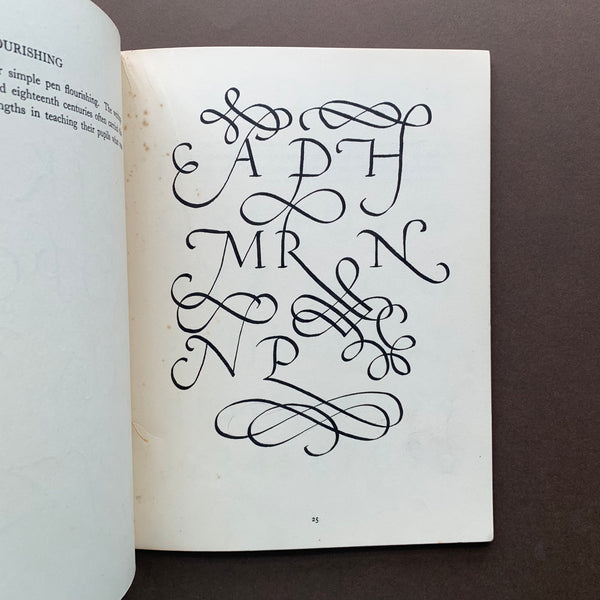 OURISHING
simple pen flourishing. The
eighteenth centuries often
in teaching their pupils
A D H
M R N
N P
25